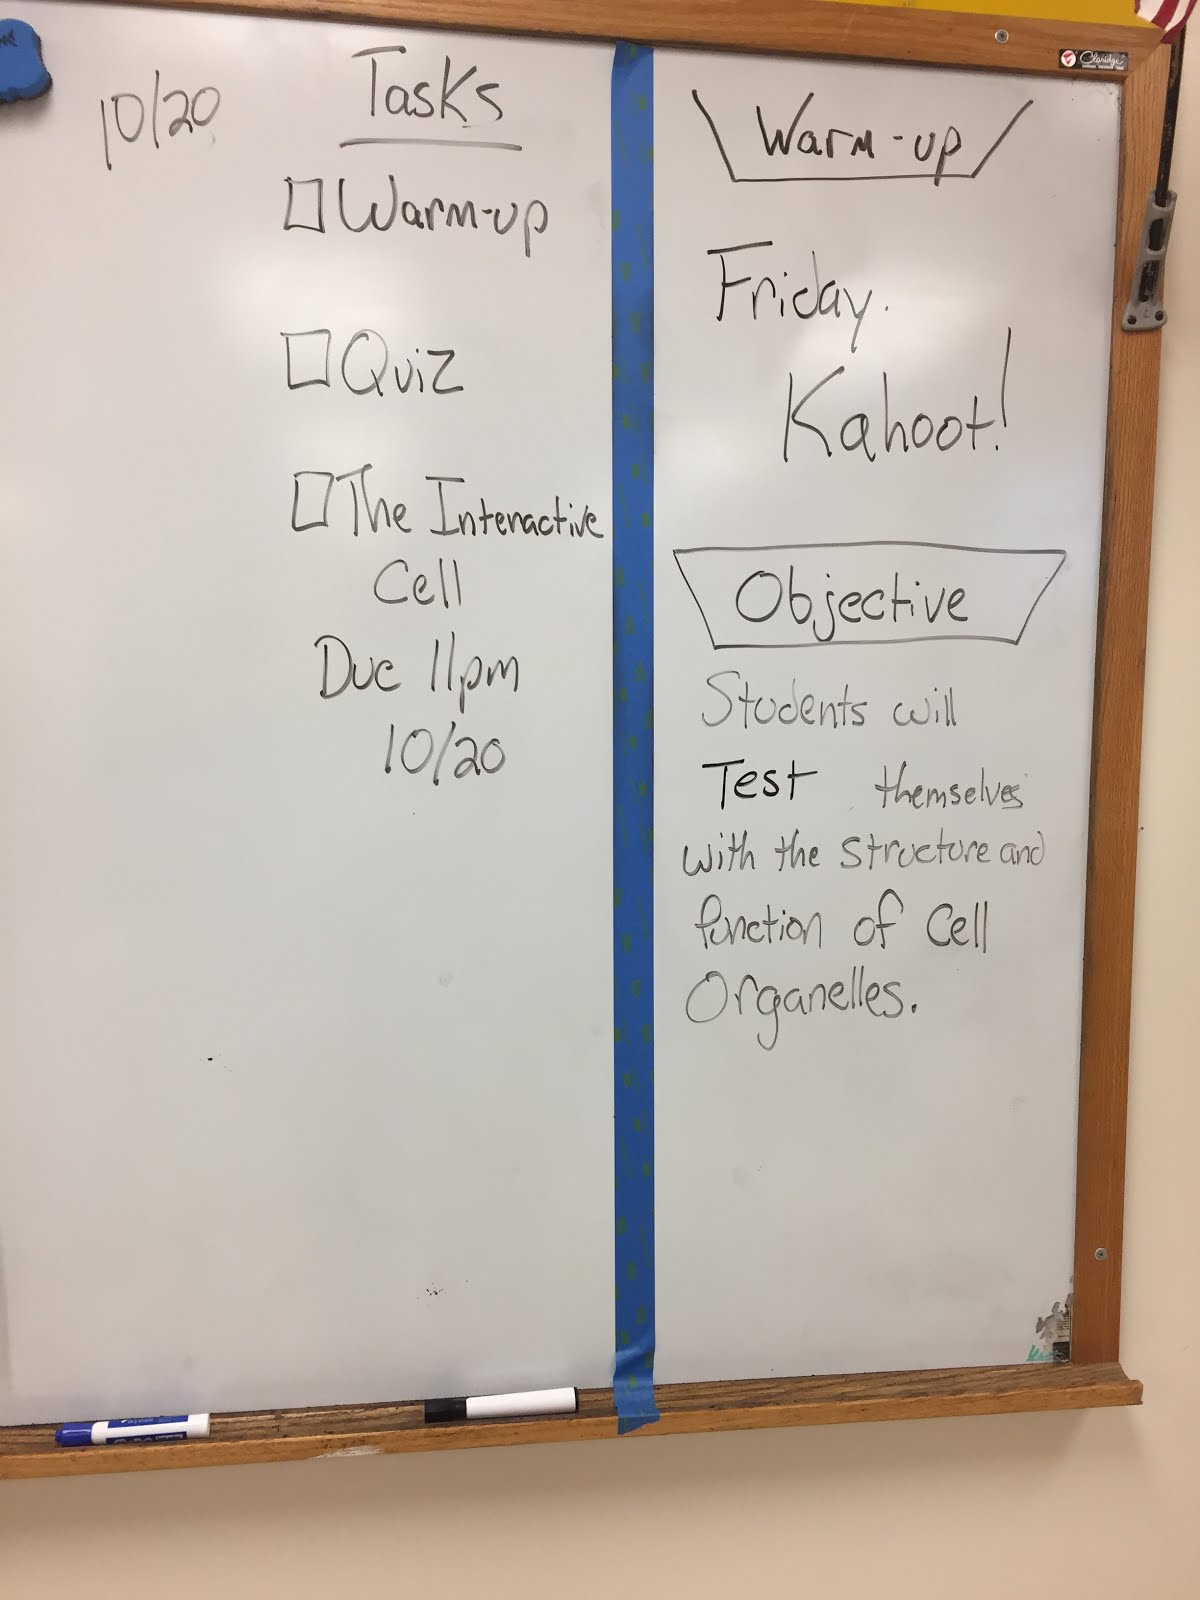 10/20
Tasks
Warm-up
Quiz
The Interactive
Cell
Due 11pm
10/20
Claridge
Warm-up
Friday.
Kahoot!
Objective
Students will
Test themselves
with the structure and
function of Cell
Organelles.